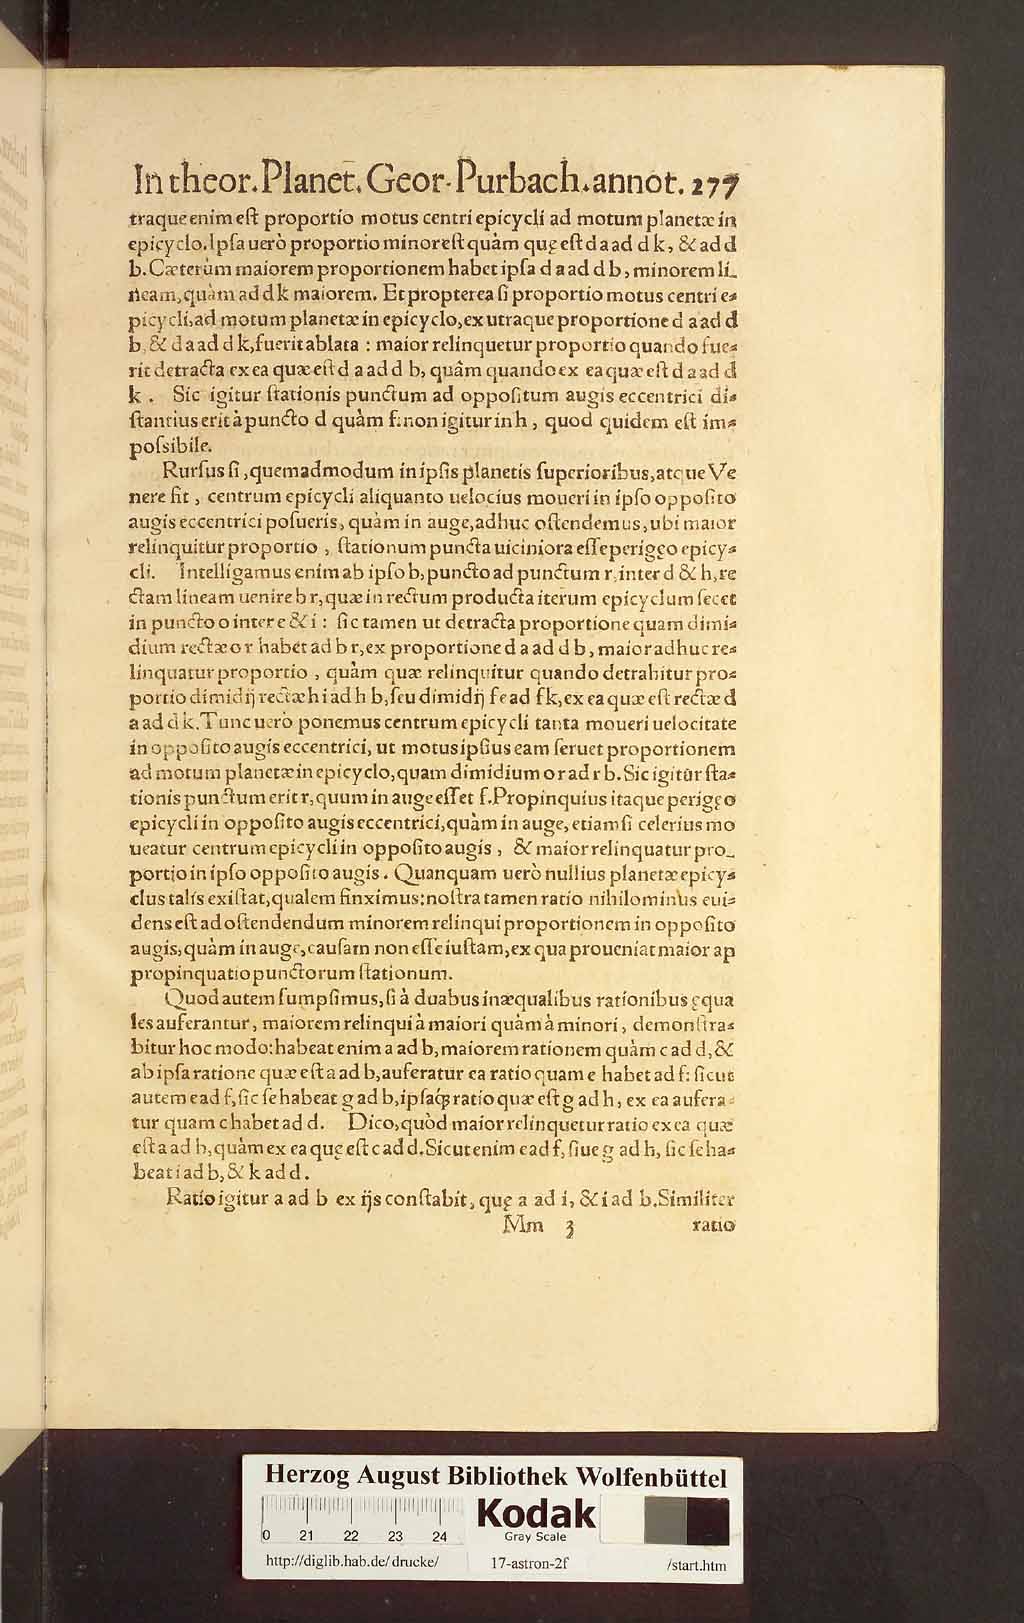 In theor. Planet. Geor. Purbach. annot. 277
traque enim est proportio motus centri epicycli ad motum planetæ in
epicyclo. Ipsa uerò proportio minor est quàm quę est d a ad d k, & ad d
b. Cæterùm maiorem proportionem habet ipsa d a ad d b, minorem li_
neam, quàm ad d k maiorem. Et propterea si proportio motus centri e⸗
picycli, ad motum planetæ in epicyclo, ex utraque proportione d a ad d
b, & d a ad d k, fuerit ablata : maior relinquetur proportio quando fue⸗
rit detracta ex ea quæ est d a ad d b, quâm quando ex ea quæ est d a ad d
k . Sic igitur stationis punctum ad oppositum augis eccentrici di⸗
stantius erit à puncto d quàm f: non igitur in h , quod quidem est im⸗
possibile.
Rursus si, quemadmodum in ipsis planetis superioribus, atque Ve
nere fit , centrum epicycli aliquanto uelocius moueri in ipso opposito
augis eccentrici posueris, quàm in auge, adhuc ostendemus, ubi maior
relinquitur proportio , stationum puncta uiciniora esse perigęo epicy⸗
cli. Intelligamus enim ab ipso b, puncto ad punctum r, inter d & h, re
ctam lineam uenire b r, quæ in rectum producta iterum epicyclum secet
in puncto o inter e & i : sic tamen ut detracta proportione quam dimi⸗
dium rectæ o r habet ad b r, ex proportione d a ad d b , maior adhuc re⸗
linquatur proportio , quàm quæ relinquitur quando detrahitur pro⸗
portio dimidij rectæ h i ad h b, seu dimidij f e ad f k, ex ea quæ est rectæ d
a ad d k. Tunc uerò ponemus centrum epicycli tanta moueri uelocitate
in opposito augis eccentrici, ut motus ipsius eam seruet proportionem
ad motum planetæ in epicyclo, quam dimidium o r ad r b. Sic igitur sta⸗
tionis punctum erit r, quum in auge esset f. Propinquius itaque perigęo
epicycli in opposito augis eccentrici, quàm in auge, etiamsi celerius mo
ueatur centrum epicycli in opposito augis , & maior relinquatur pro_
portio in ipso opposito augis . Quanquam uerò nullius planetæ epicy⸗
clus talis existat, qualem finximus: nostra tamen ratio nihilominus eui⸗
dens est ad ostendendum minorem relinqui proportionem in opposito
augis, quàm in auge, causam non esse iustam, ex qua proueniat maior ap
propinquatio punctorum stationum.
Quod autem sumpsimus, si à duabus inæqualibus rationibus ęqua
les auferantur, maiorem relinqui à maiori quàm à minori, demonstra⸗
bitur hoc modo: habeat enim a ad b, maiorem rationem quàm c ad d, &
ab ipsa ratione quæ est a ad b, auferatur ea ratio quam e habet ad f: sicut
autem e ad f, sic se habeat g ad b, ipsaq́ꝫ ratio quæ est g ad h, ex ea aufera⸗
tur quam c habet ad d. Dico, quòd maior relinquetur ratio ex ea quæ
est a ad b, quàm ex ea quę est c ad d. Sicut enim e ad f, siue g ad h, sic se ha⸗
beat i ad b, & k ad d .
Ratio igitur a ad b ex ijs constabit, quę a ad i, & i ad b. Similiter
Mm 3 ratio
Herzog August Bibliothek Wolfenbüttel
0 21 22 23 24
Kodak
Gray Scale
http://diglib.hab.de/drucke/ 17-astron-2f /start.htm